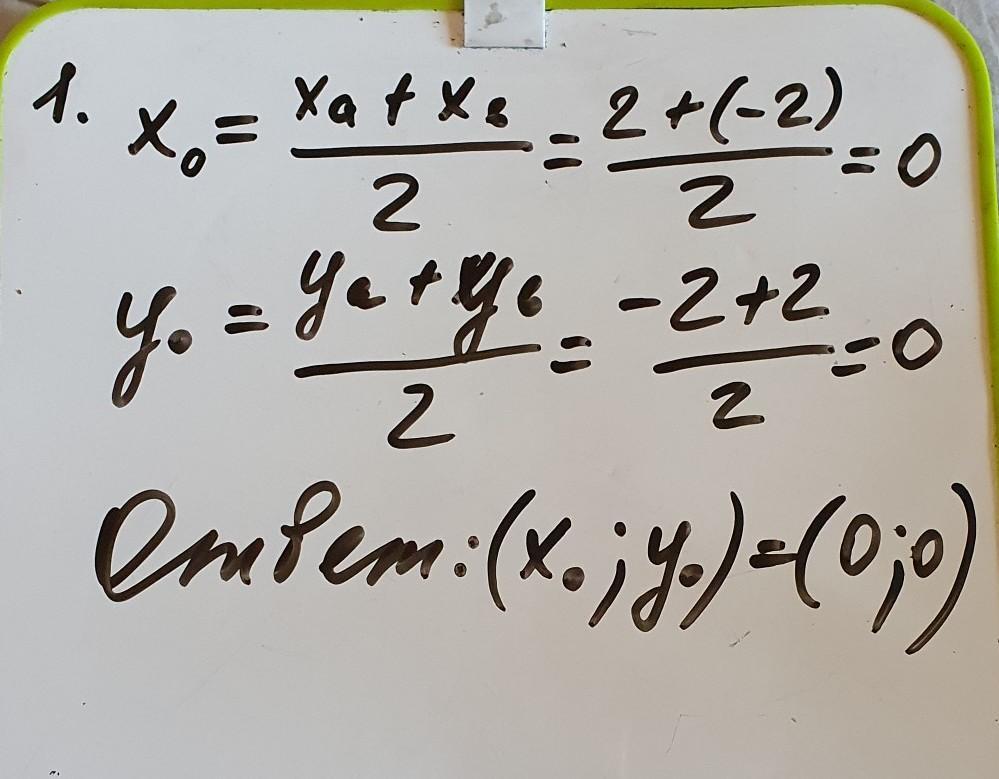 1. x₀ = (xₐ + xв)/2 = (2 + (-2))/2 = 0
y₀ = (yₐ + yв)/2 = (-2 + 2)/2 = 0
Ответ: (x₀; y₀) = (0; 0)